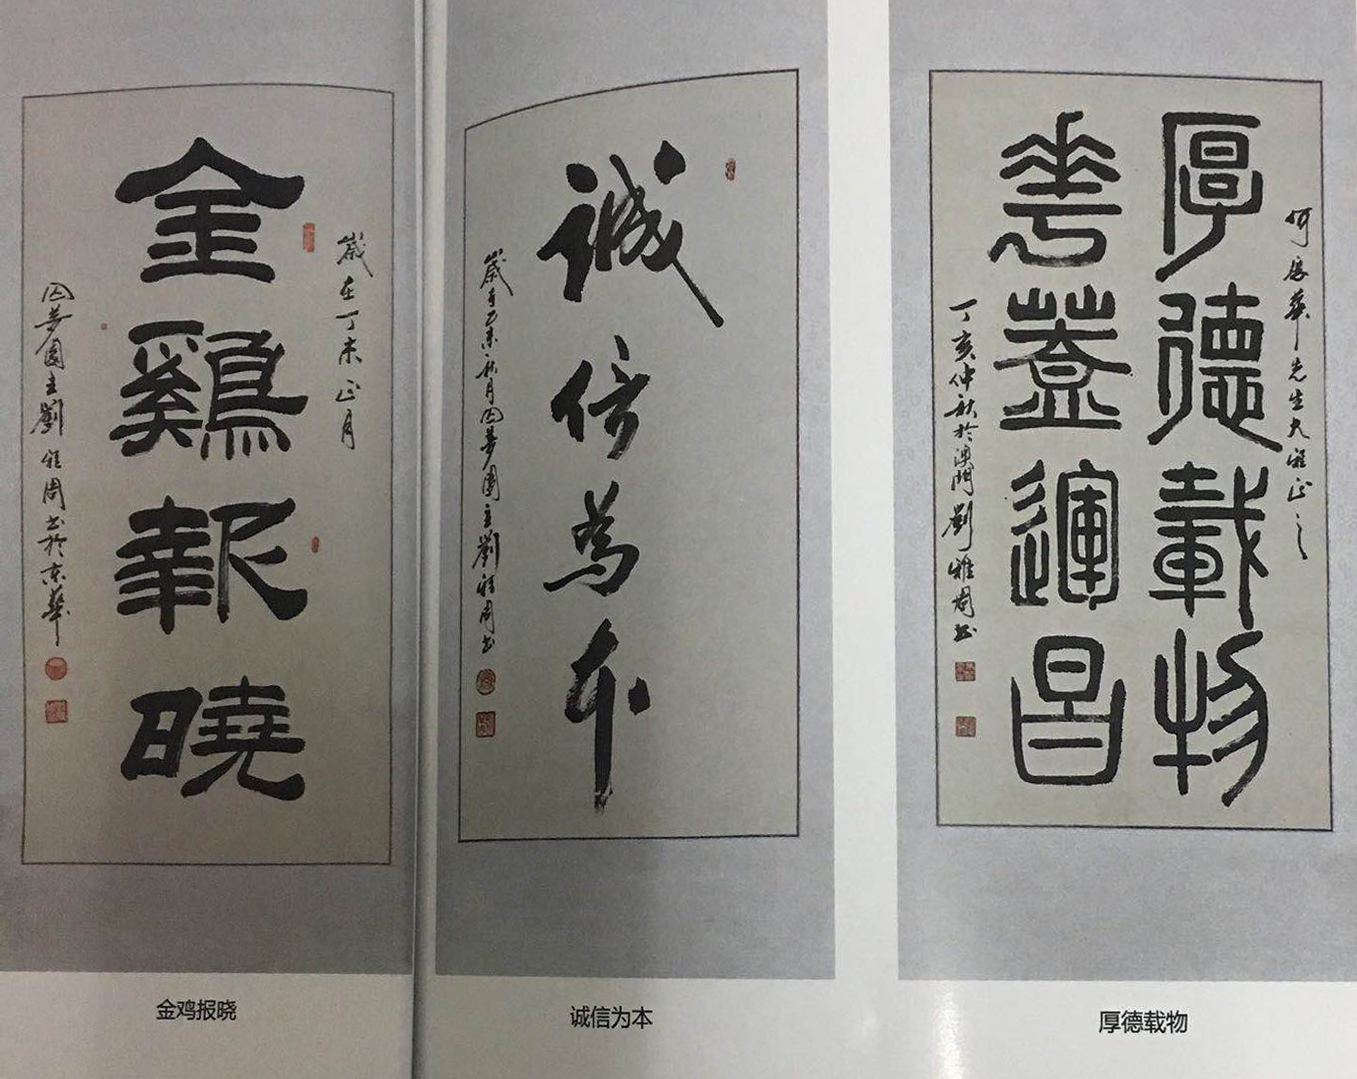 歲在丁未正月
金鷄報曉
囚夢園主劉雅周书於京華
金鸡报晓
誠信為本
歲在乙未秋月囚夢園主劉雅周书
诚信为本
何厚華先生大雅正之
厚德載物
華蓋運昌
丁亥仲秋於澳門劉雅周书
厚德载物